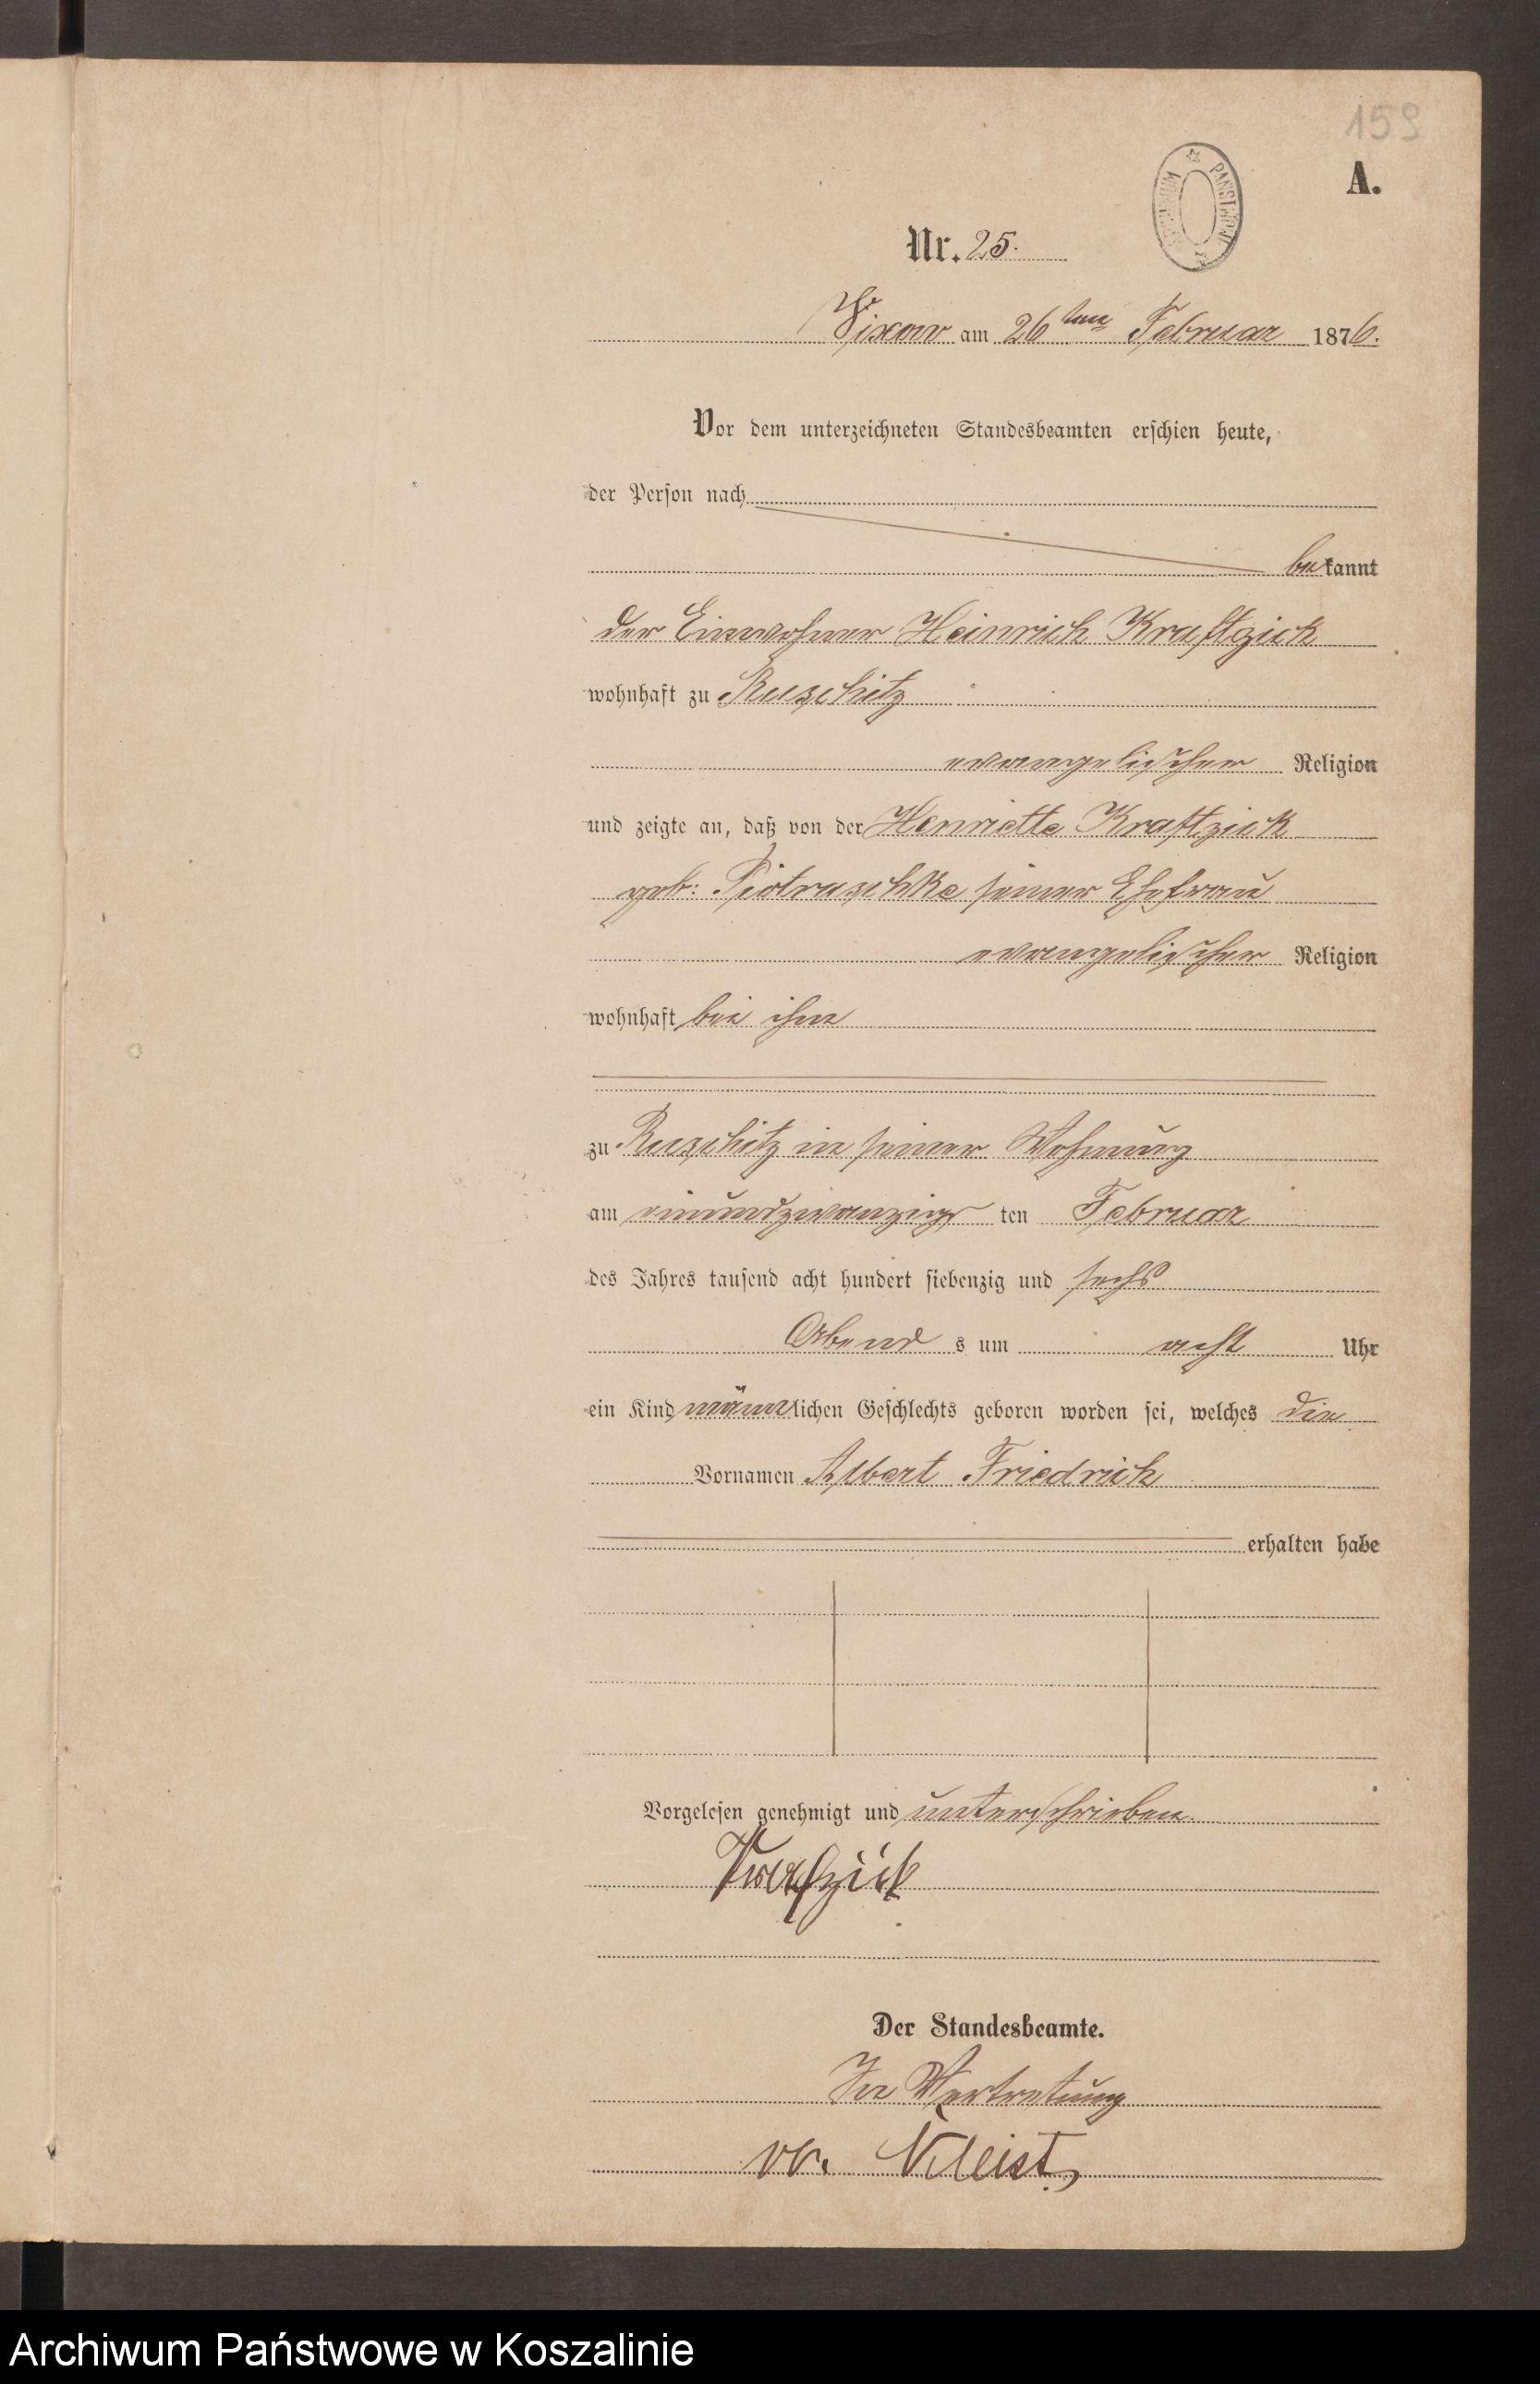 159
A.
ARCHIWUM PAŃSTWOWE
Nr. 25.
Vixow am 26ten Februar 1876.
Vor dem unterzeichneten Standesbeamten erschien heute,
der Person nach
bekannt
der Einwohner Heinrich Kraftzick
wohnhaft zu Ruschitz
evangelischer Religion
und zeigte an, daß von der Henriette Kraftzick
geb: Piotruschke seiner Ehefrau
evangelischer Religion
wohnhaft bei ihm
zu Ruschitz in seiner Wohnung
am einundzwanzigs ten Februar
des Jahres tausend acht hundert siebenzig und sechs
Abend s um acht Uhr
ein Kind männlichen Geschlechts geboren worden sei, welches die
Vornamen Albert Friedrich
erhalten habe
Vorgelesen genehmigt und unterschrieben.
Der Standesbeamte.
In Vertretung
v. Kleist
Archiwum Państwowe w Koszalinie